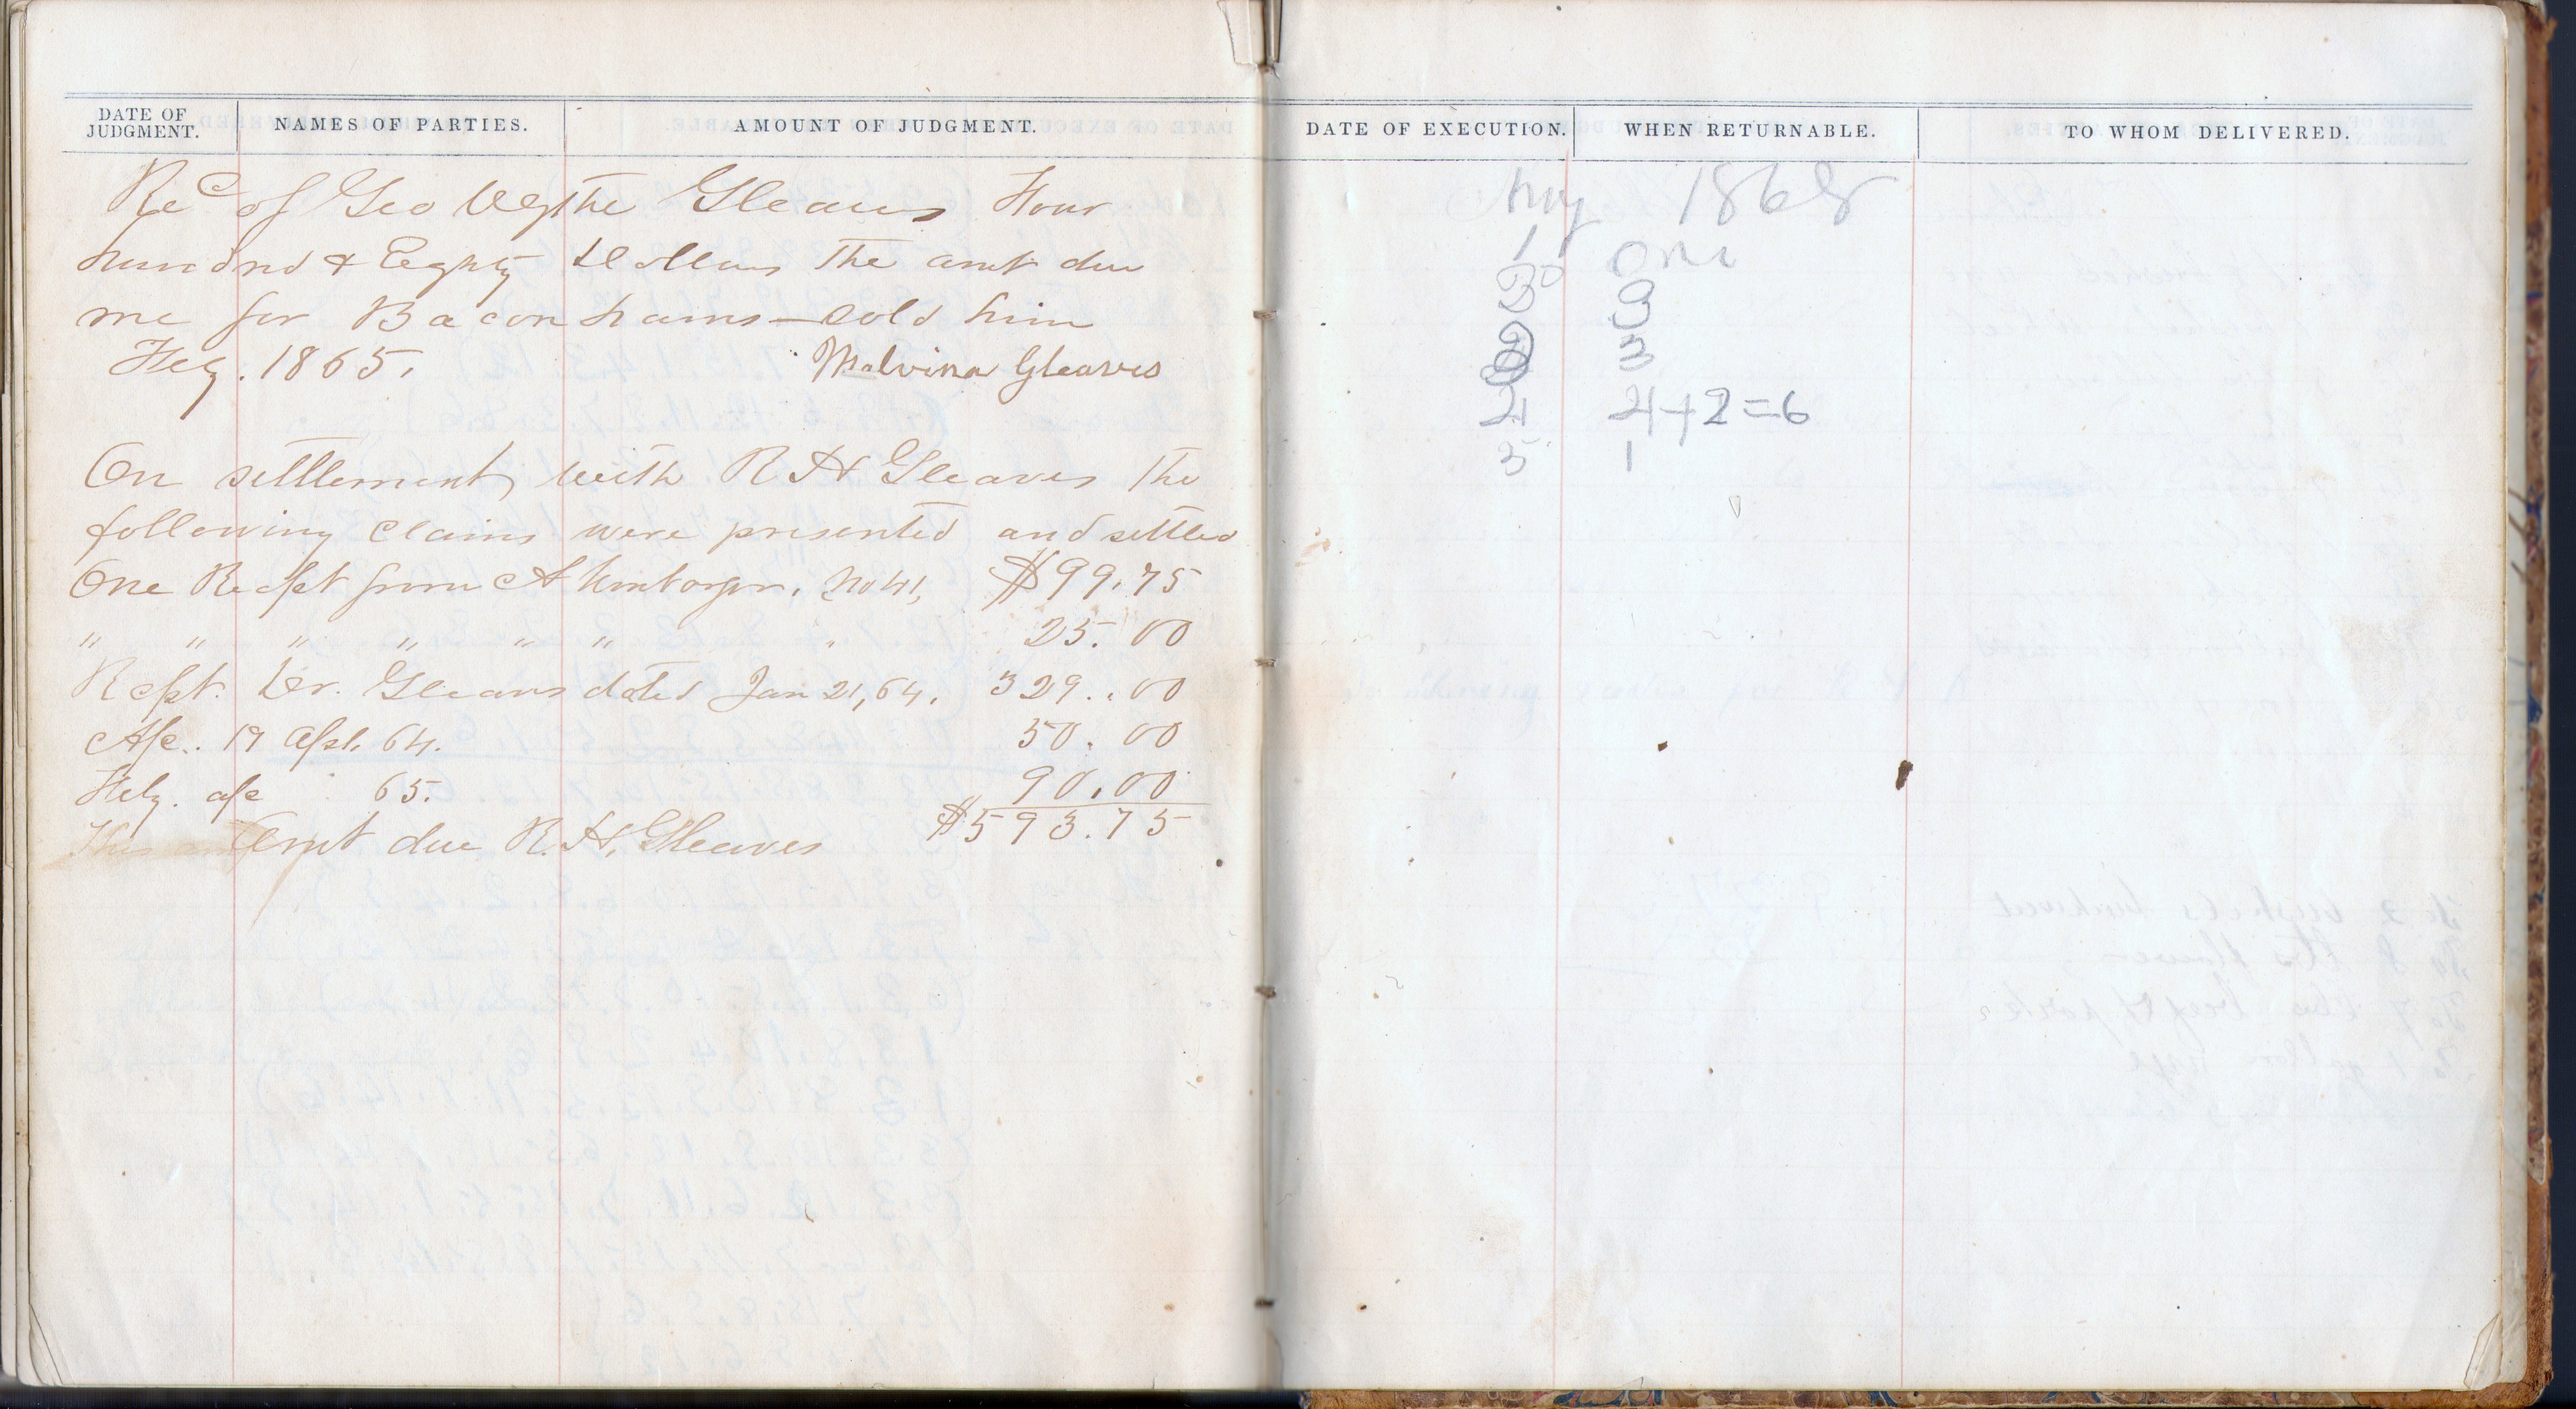 DATE OF JUDGMENT. NAMES OF PARTIES. AMOUNT OF JUDGMENT.
Recd of Geo Wythe Gleaves Four
hundred & Eighty Dollars The amt due
me for Bacon hams — sold him
Feby. 1865. Malvina Gleaves
On settlement with R H Gleaves The
following claims were presented and settled
One Recpt from A Umbarger, No 41, $99.75
" " " " " " " 25.00
Recpt. Dr. Gleaves dated Jan 21, 64. 329..00
A/c. 19 Apl. 64. 50.00
Feby. a/c 65. 90.00
Amt due R. H. Gleaves $593.75
DATE OF EXECUTION. WHEN RETURNABLE. TO WHOM DELIVERED.
1868
1 one
3
4 4+2=6
5 1